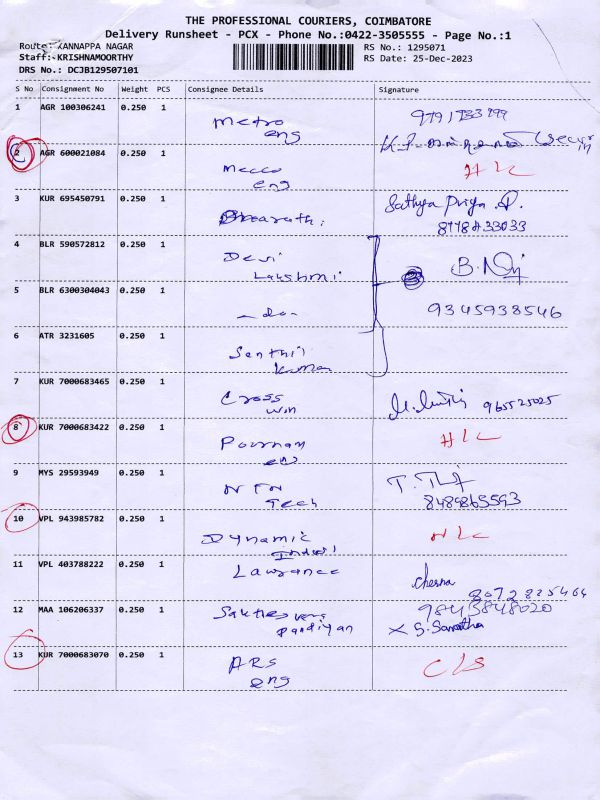 THE PROFESSIONAL COURIERS, COIMBATORE
Delivery Runsheet - PCX - Phone No.:0422-3505555 - Page No.:1
Route: KANNAPPA NAGAR
RS No.: 1295071
Staff: KRISHNAMOORTHY
RS Date: 25-Dec-2023
DRS No.: DCJB129507101
S No Consignment No Weight PCS Consignee Details Signature
1 AGR 100306241 0.250 1 Metro
eng
2 AGR 600021084 0.250 1 Mecco
eng
3 KUR 695450791 0.250 1 Bharathi Sathya Priya .P.
4 BLR 590572812 0.250 1 Devi
Lakshmi
5 BLR 6300304043 0.250 1 -do- 9345938546
6 ATR 3231605 0.250 1 Senthil
Kumar
7 KUR 7000683465 0.250 1 Cross
win 965525025
8 KUR 7000683422 0.250 1 Pournam
9 MYS 29593949 0.250 1 NTN
Tech 8489865593
10 VPL 943985782 0.250 1 Dynamic
11 VPL 403788222 0.250 1 Lawrance
8072825464
12 MAA 106206337 0.250 1 9843848020
Pandiyan
13 KUR 7000683070 0.250 1 ARS C/S
eng